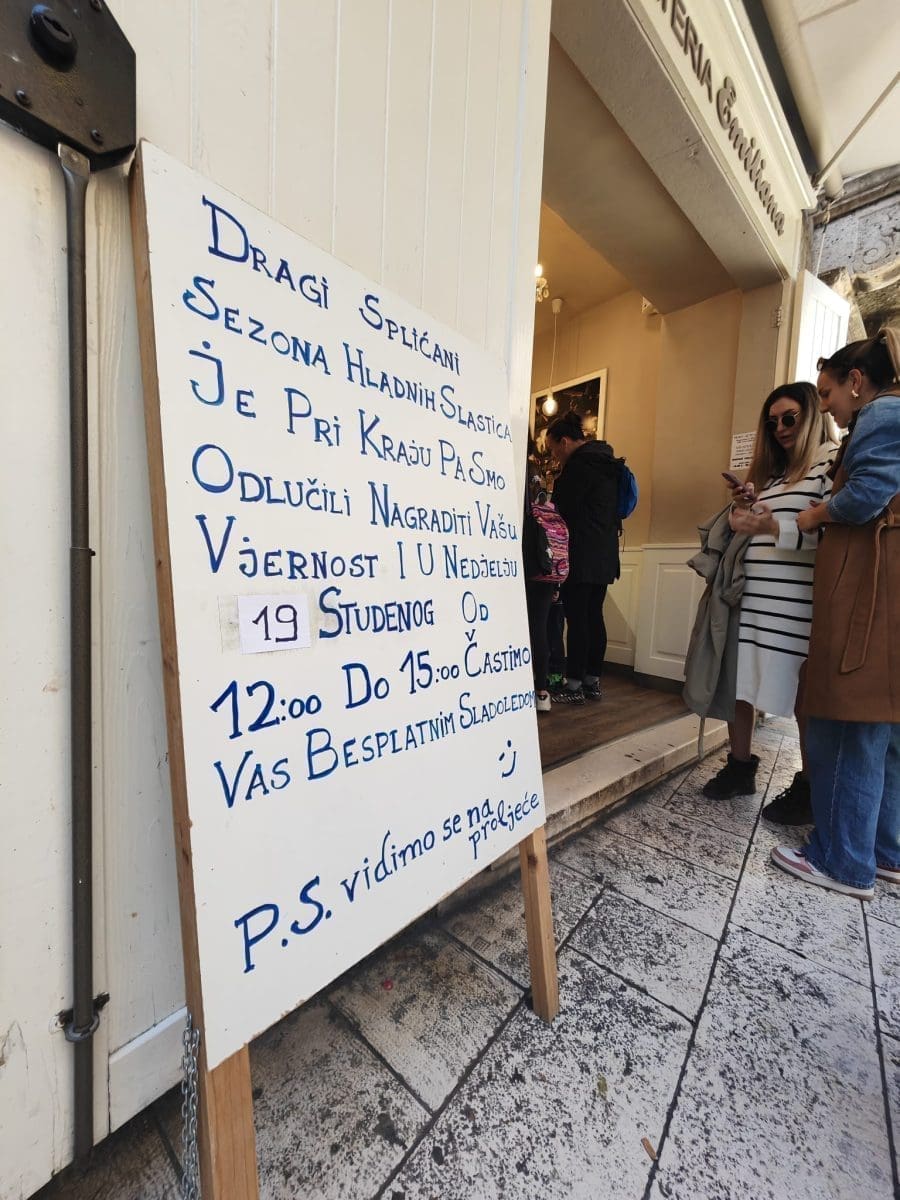 TERIA Emiliana
DRAGI SPLIĆANI
SEZONA HLADNIH SLASTICA
JE PRI KRAJU PA SMO
ODLUČILI NAGRADITI VAŠU
VJERNOST I U NEDJELJU
19 STUDENOG OD
12:00 DO 15:00 ČASTIMO
VAS BESPLATNIM SLADOLEDOM
:)
P.S. vidimo se na
proljeće